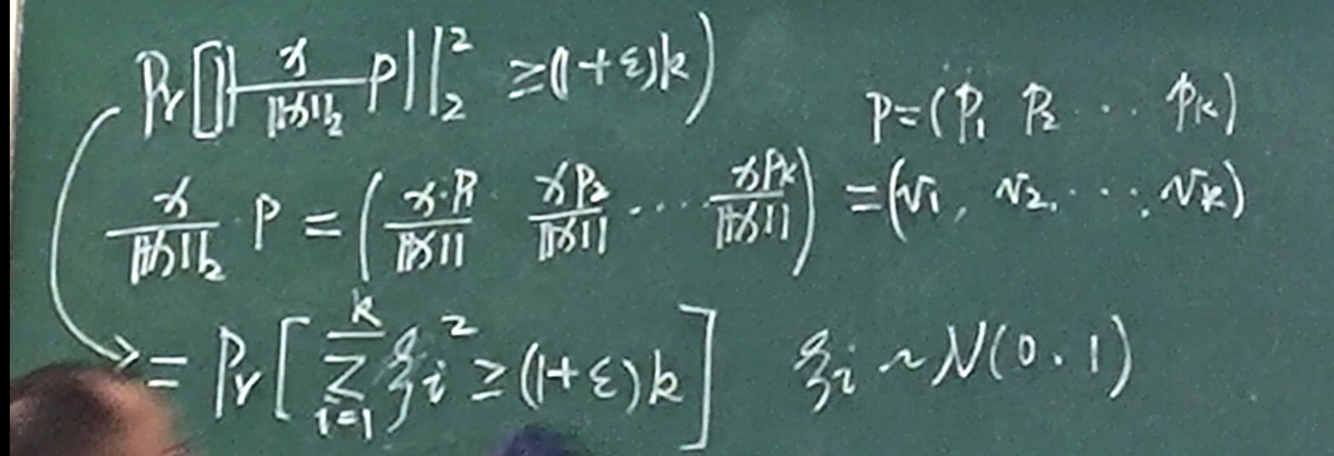 Pr[||x/||x||₂ P||₂² ≥ (1+ε)k)
P=(P₁ P₂ ⋯ Pₖ)
x/||x||₂ · P = (x·P₁/||x|| xP₂/||x|| ⋯ xPₖ/||x||) = (v₁, v₂, ⋯, vₖ)
= Pr[∑ᵢ₌₁ᵏ ξᵢ² ≥ (1+ε)k] ξᵢ ~ N(0.1)